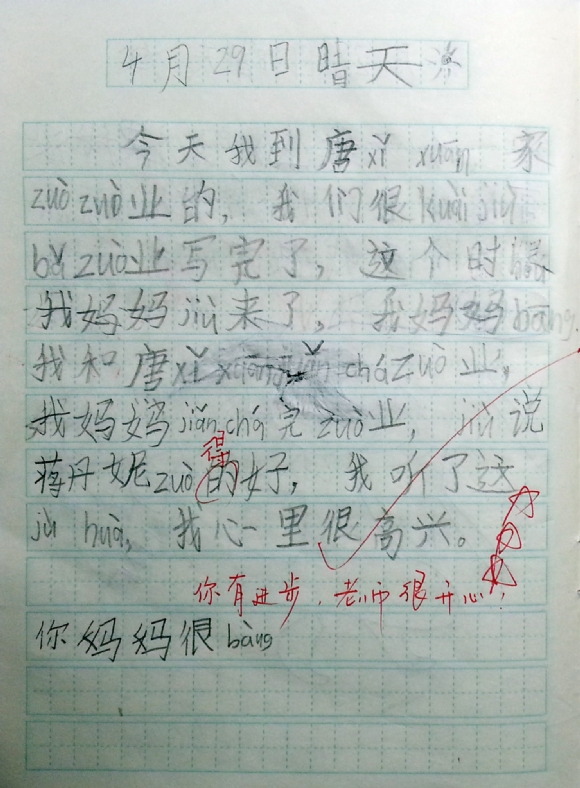 4月29日晴天
今天我到唐xǐ xuān 家
zuò zuò业的，我们很kuài jiù
bǎ zuò业写完了，这个时
我妈妈jiù来了，我妈妈bāng
我和唐xǐ xuān jiǎn chá zuò业，
我妈妈jiǎn chá完zuò业，jiù说
得
蒋丹妮zuò的好，我听了这
jù huà，我心里很高兴。
你有进步，老师很开心！
你妈妈很bàng